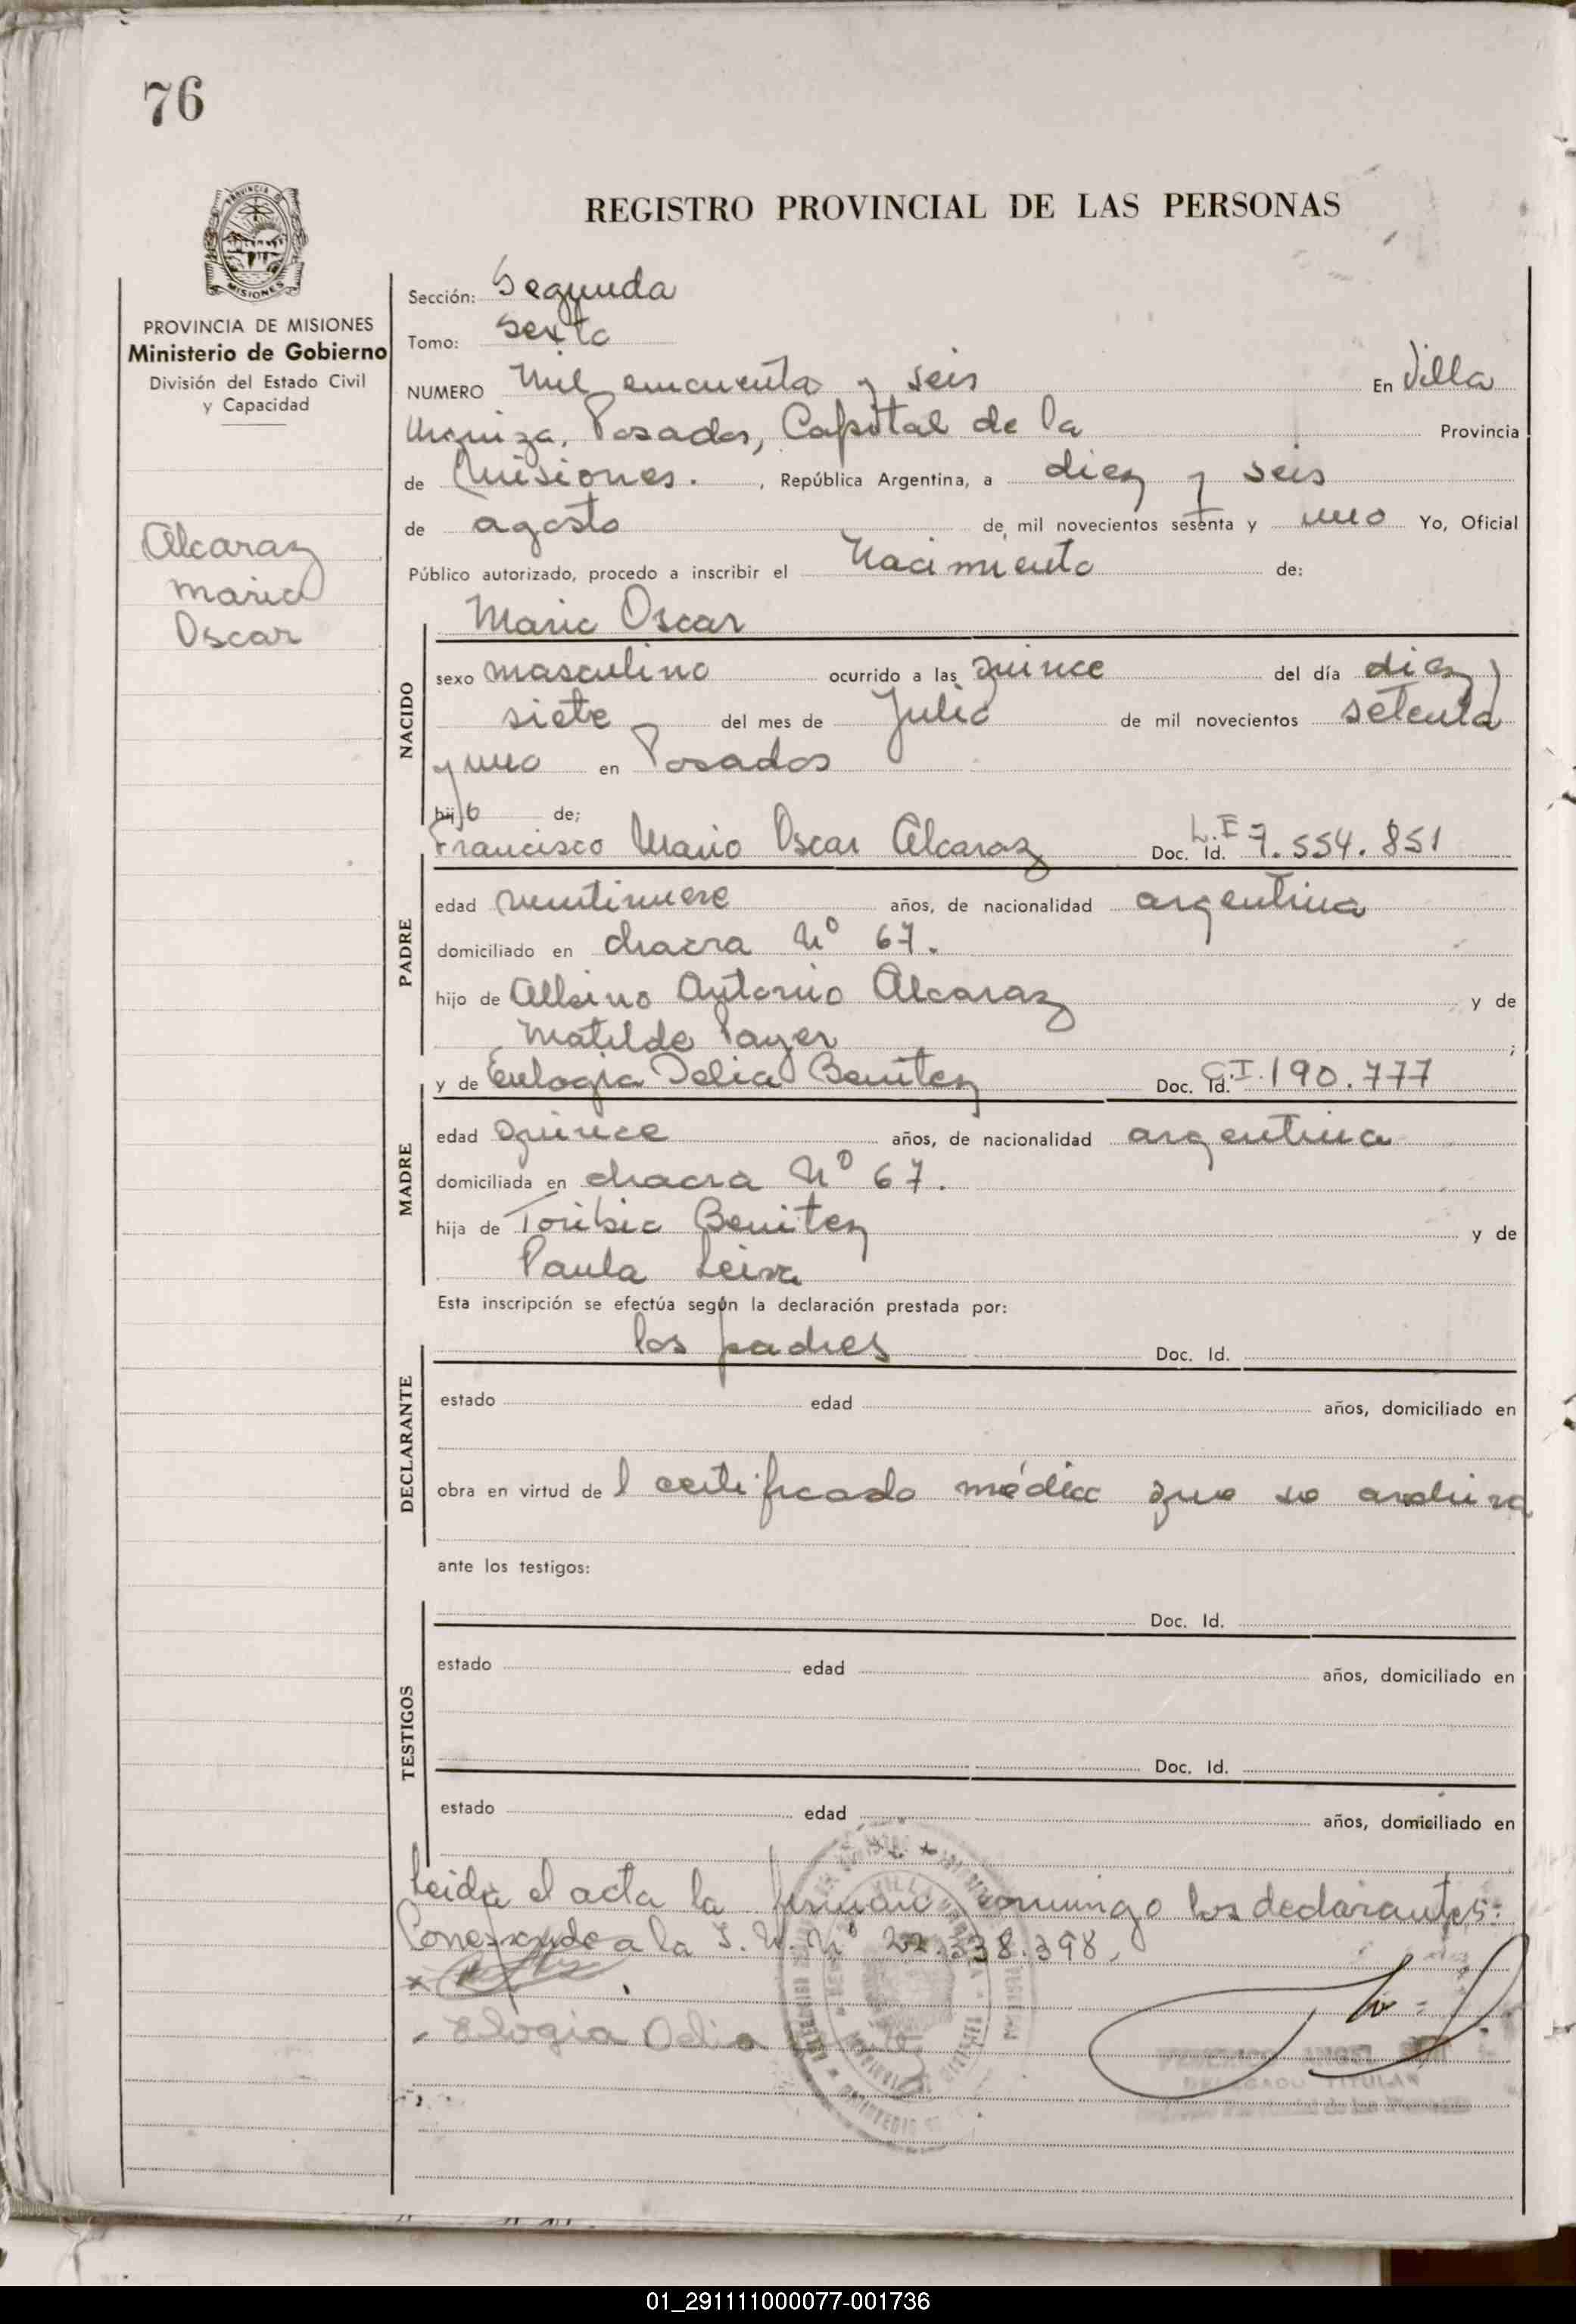 76
REGISTRO PROVINCIAL DE LAS PERSONAS
PROVINCIA DE MISIONES
Ministerio de Gobierno
División del Estado Civil
y Capacidad
Alcaraz
Mario
Oscar
Sección: Segunda
Tomo: Sexto
NUMERO Mil cincuenta y seis En Villa
Urquiza, Posadas, Capital de la Provincia
de Misiones. , República Argentina, a diez y seis
de agosto de mil novecientos sesenta y uno Yo, Oficial
Público autorizado, procedo a inscribir el Nacimiento de:
Mario Oscar
NACIDO
sexo masculino ocurrido a las quince del día diez y
siete del mes de Julio de mil novecientos setenta
y uno en Posadas
hijo de;
Francisco Mario Oscar Alcaraz Doc. Id. L.E 7.554.851
PADRE
edad veintinueve años, de nacionalidad argentina
domiciliado en chacra Nº 67.
hijo de Albino Antonio Alcaraz y de
Matilde Payer ;
y de Eulogia Delia Benitez Doc. Id. C.I. 190.777
MADRE
edad quince años, de nacionalidad argentina
domiciliada en chacra Nº 67.
hija de Toribio Benitez y de
Paula Leiva
Esta inscripción se efectúa según la declaración prestada por:
los padres Doc. Id.
DECLARANTE
estado edad años, domiciliado en
obra en virtud de l certificado médico que se archiva
ante los testigos:
Doc. Id.
TESTIGOS
estado edad años, domiciliado en
Doc. Id.
estado edad años, domiciliado en
Leida el acta la firman conmigo los declarantes:
Corresponde a la I. N. Nº 22.338.398,
Elogia Delia
DELEGADO TITULAR
01_291111000077-001736